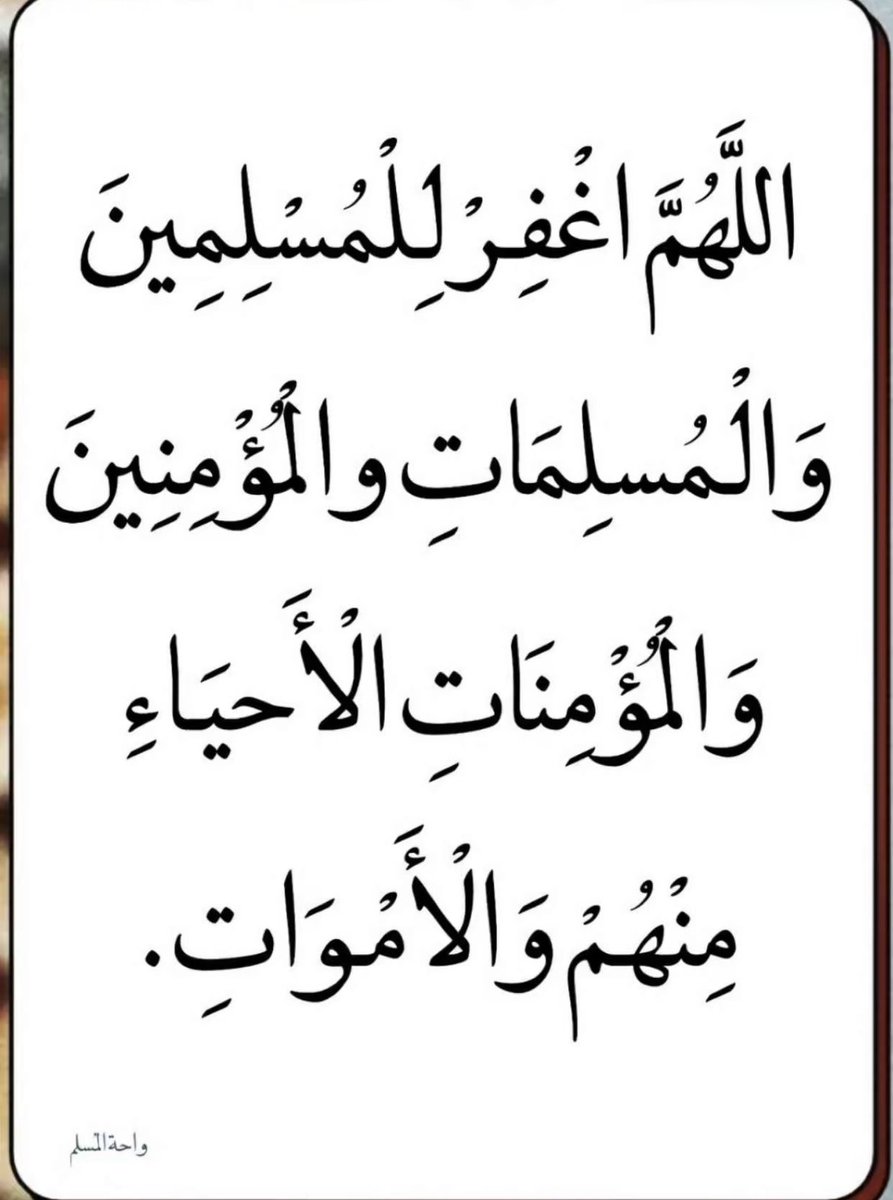 اللَّهُمَّ اغْفِرْ لِلْمُسْلِمِينَ
وَالْمُسلِمَاتِ والْمُؤْمِنِينَ
وَالْمُؤْمِنَاتِ الْأَحيَاءِ
مِنْهُمْ وَالْأَمْوَاتِ.
واحة المسلم